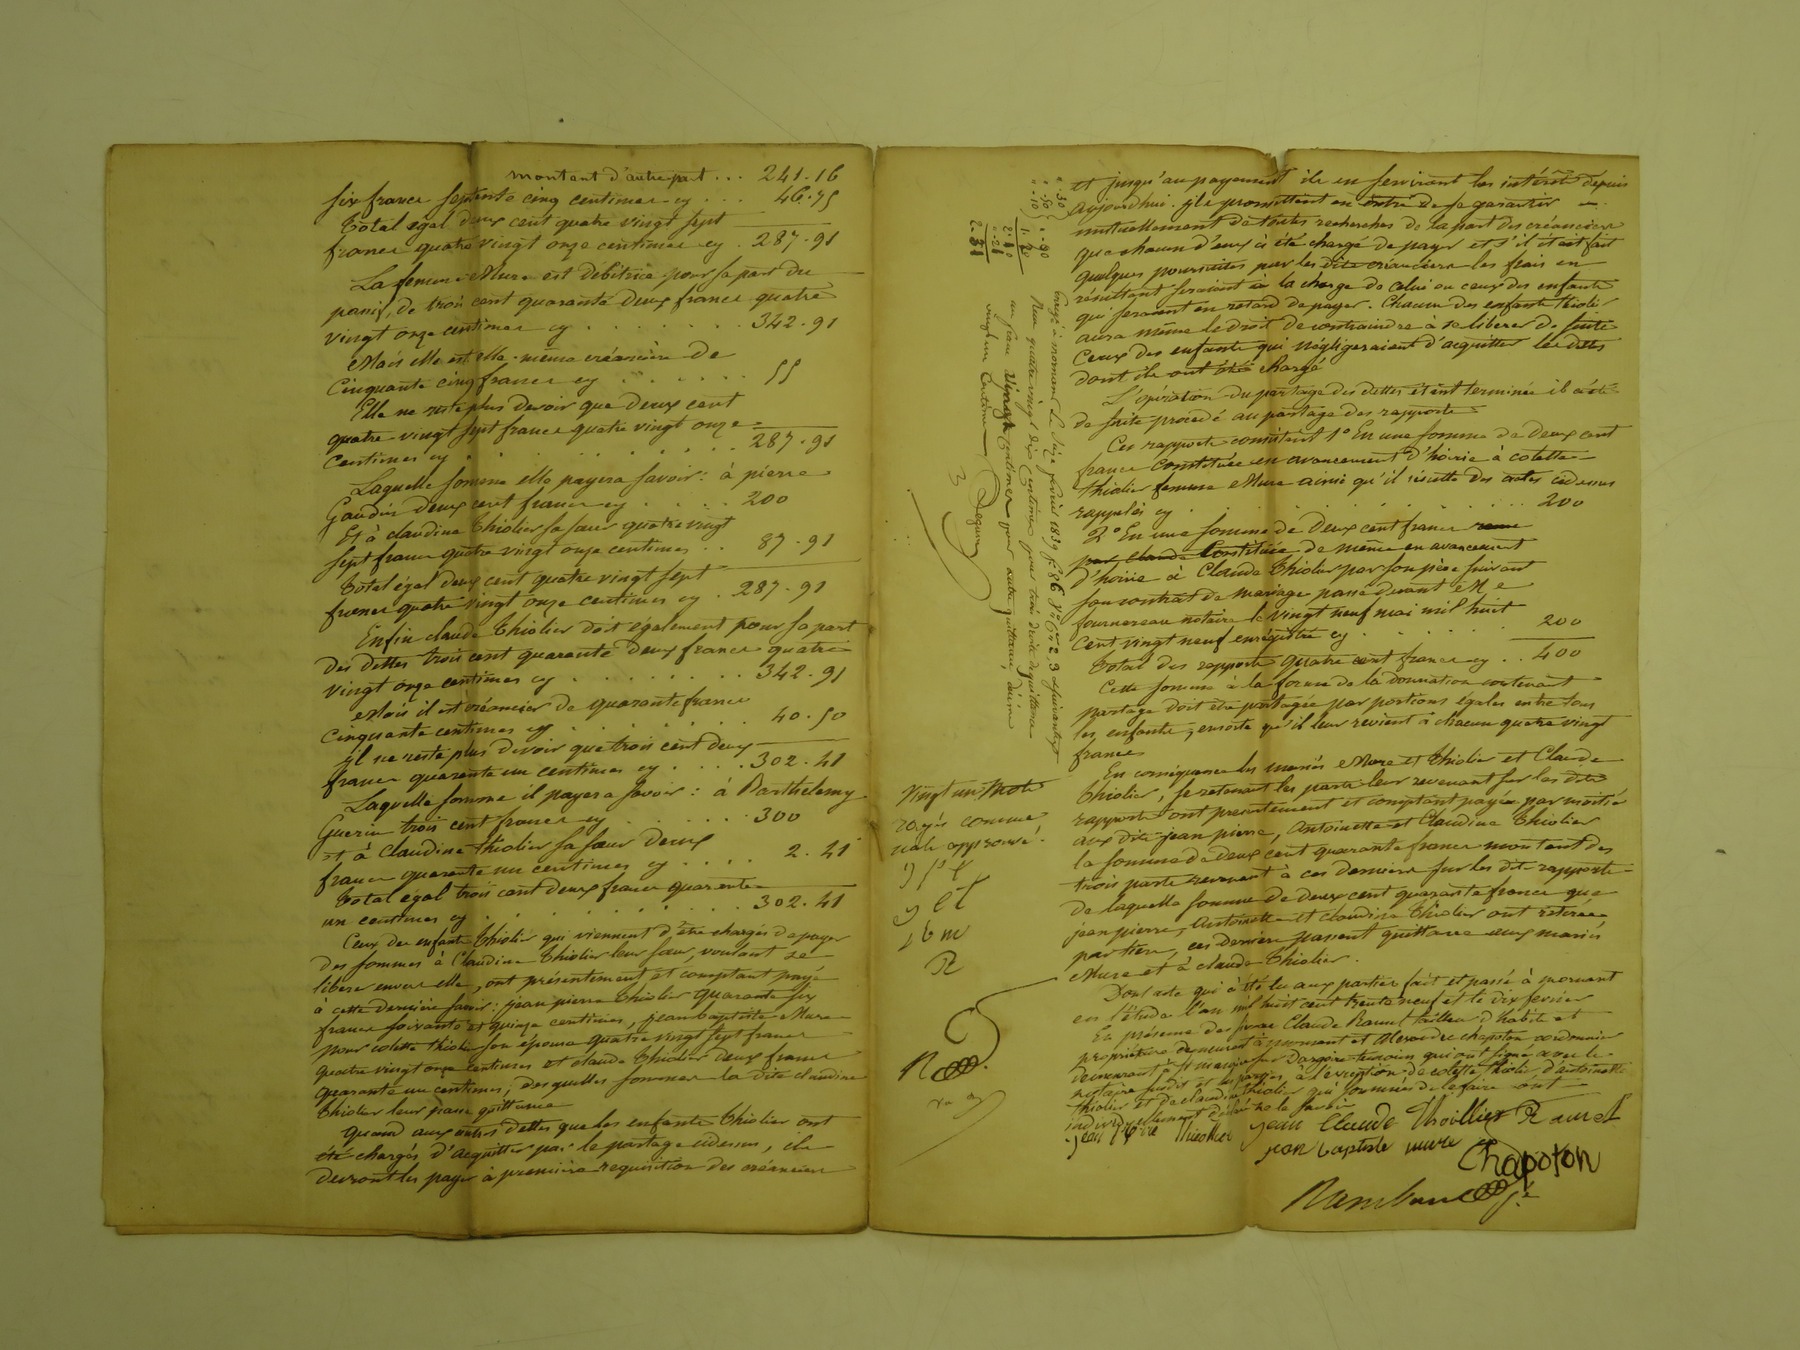 montant d'autre part ... 241.16
six francs septante cinq centimes cy ... 46.75
Total égal deux cent quatre vingt sept
francs quatre vingt onze centimes cy . 287.91
La femme Mure est débitrice pour sa part du
passif, de trois cent quarante deux francs quatre
vingt onze centimes cy ....... 342.91
Mais elle est elle-même créancière de
Cinquante cinq francs cy ...... 55
Elle ne reste plus devoir que deux cent
quatre vingt sept francs quatre vingt onze
Centimes cy ........ 287.91
Laquelle somme elle payera savoir: à pierre
Gaudin deux cent francs cy ..... 200
Et à claudine Thiolier sa sœur quatre vingt
sept francs quatre vingt onze centimes .. 87.91
Total égal deux cent quatre vingt sept
francs quatre vingt onze centimes cy . 287.91
Enfin claude Thiolier doit également pour sa part
des dettes trois cent quarante deux francs quatre
vingt onze centimes cy ....... 342.91
Mais il est créancier de quarante francs
Cinquante centimes cy ....... 40.50
Il ne reste plus devoir que trois cent deux
francs quarante un centimes cy .... 302.41
Laquelle somme il payera savoir: à Barthélemy
Guerin trois cent francs cy ...... 300
et à Claudine Thiolier sa sœur deux
francs quarante un centimes cy .... 2.41
Total égal trois cent deux francs quarante
un centimes cy ......... 302.41
Ceux des enfants Thiolier qui viennent d'être chargés de payer
des sommes à Claudine Thiolier leur sœur, voulant se
libérer envers elle, ont présentement et comptant payé
à cette dernière savoir: jean pierre Thiolier quarante six
francs soixante et quinze centimes, jean baptiste Mure
pour colette thiolier son épouse quatre vingt sept francs
quatre vingt onze centimes et claude Thiolier deux francs
quarante un centimes, desquelles sommes la dite claudine
Thiolier leur passe quittance
Quand aux autres dettes que les enfants Thiolier ont
été chargés d'acquitter par le partage cidessus, ils
devront les payer à première requisition des créanciers
et jusqu'au payement ils en serviront les intérêts depuis
aujourdhui. ils promettent en outre de se garantir
mutuellement de toutes recherches de la part des créanciers
que chacun d'eux a été chargé de payer et s'il était fait
quelques poursuites par les dits créanciers les frais en
résultant seraient à la charge de celui ou ceux des enfants
qui seraient en retard de payer. Chacun des enfants thiolier
aura même le droit de contraindre à se libérer de suite
Ceux des enfants qui négligeraient d'acquitter les dettes
dont ils ont été chargé
L'opération du partage des dettes étant terminée il a été
de suite procédé au partage des rapports
Ces rapports consistent 1° En une somme de deux cent
francs constituée en avancement d'hoirie à colette
thiolier femme Mure ainsi qu'il résulte des actes cidessus
rappelés cy .......... 200
2° En une somme de deux cent francs
par claude Constituée de même en avancement
d'hoirie à Claude Thiolier par son père suivant
son contrat de mariage passé devant Me
fournereau notaire le vingt neuf mai mil huit
Cent vingt neuf enregistré cy ...... 200
Total des rapports quatre cent francs cy .. 400
Cette somme à la forme de la donnation contenant
partage doit être partagée par portions égales entre tous
les enfants, ensorte qu'il leur revient à chacun quatre vingt
francs
En conséquence les mariés Mure et Thiolier et Claude
Thiolier, se retenant les parts leur revenant sur les dits
rapports ont présentement et comptant payée par moitié
aux dits jean pierre, Antoinette et Claudine Thiolier
la somme de deux cent quarante francs montant des
trois parts revenant à ces derniers sur les dits rapports
de laquelle somme de deux cent quarante francs que
jean pierre, Antoinette et claudine Thiolier ont retirée
par tiers, ces derniers passent quittance aux mariés
Mure et à claude Thiolier.
Dont acte qui a été lu aux parties fait et passé à mornant
en l'étude l'an mil huit cent trente neuf et le dix fevrier
En présence des sieurs Claude Raunet tailleur d'habits et
propriétaire demeurant à mornant et Alexandre chapoton cordonnier
demeurant à St maurice sur Dargoire témoins qui ont signé avec le
notaire susdit et les parties à l'exception de colette thiolier, d'antoinette
thiolier et de claudine thiolier qui sommées de le faire ont
individuellement déclaré ne le savoir
jean pierre Thiollier jean Claude Thoillier Raunet
jean baptiste mure Chapoton
Vingt un mots
rayés comme
nuls approuvé.
R
.30
.50
.10
.90
1.20
2.10
.21
2.31
Enregé à mornant le seize fevrier 1839 f° 86
Reçu quatre vingt dix centimes pour trois droits de quittance
un franc vingt centimes pour autre quittance, décime
vingt un centimes